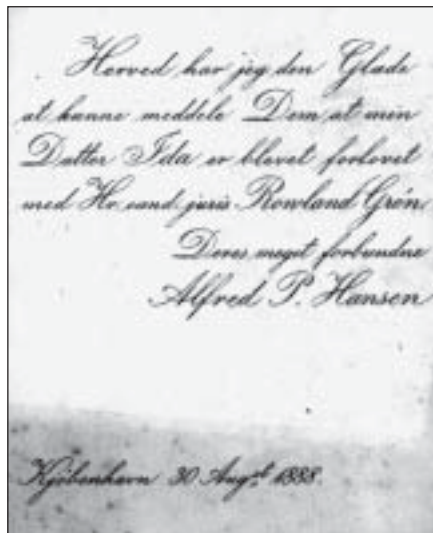 Herved har jeg den Glæde
at kunne meddele Dem at min
Datter Ida er blevet forlovet
med Hr. cand. juris Rowland Grøn
Deres meget forbundne
Alfred P. Hansen
Kjøbenhavn 30 Augst. 1888.